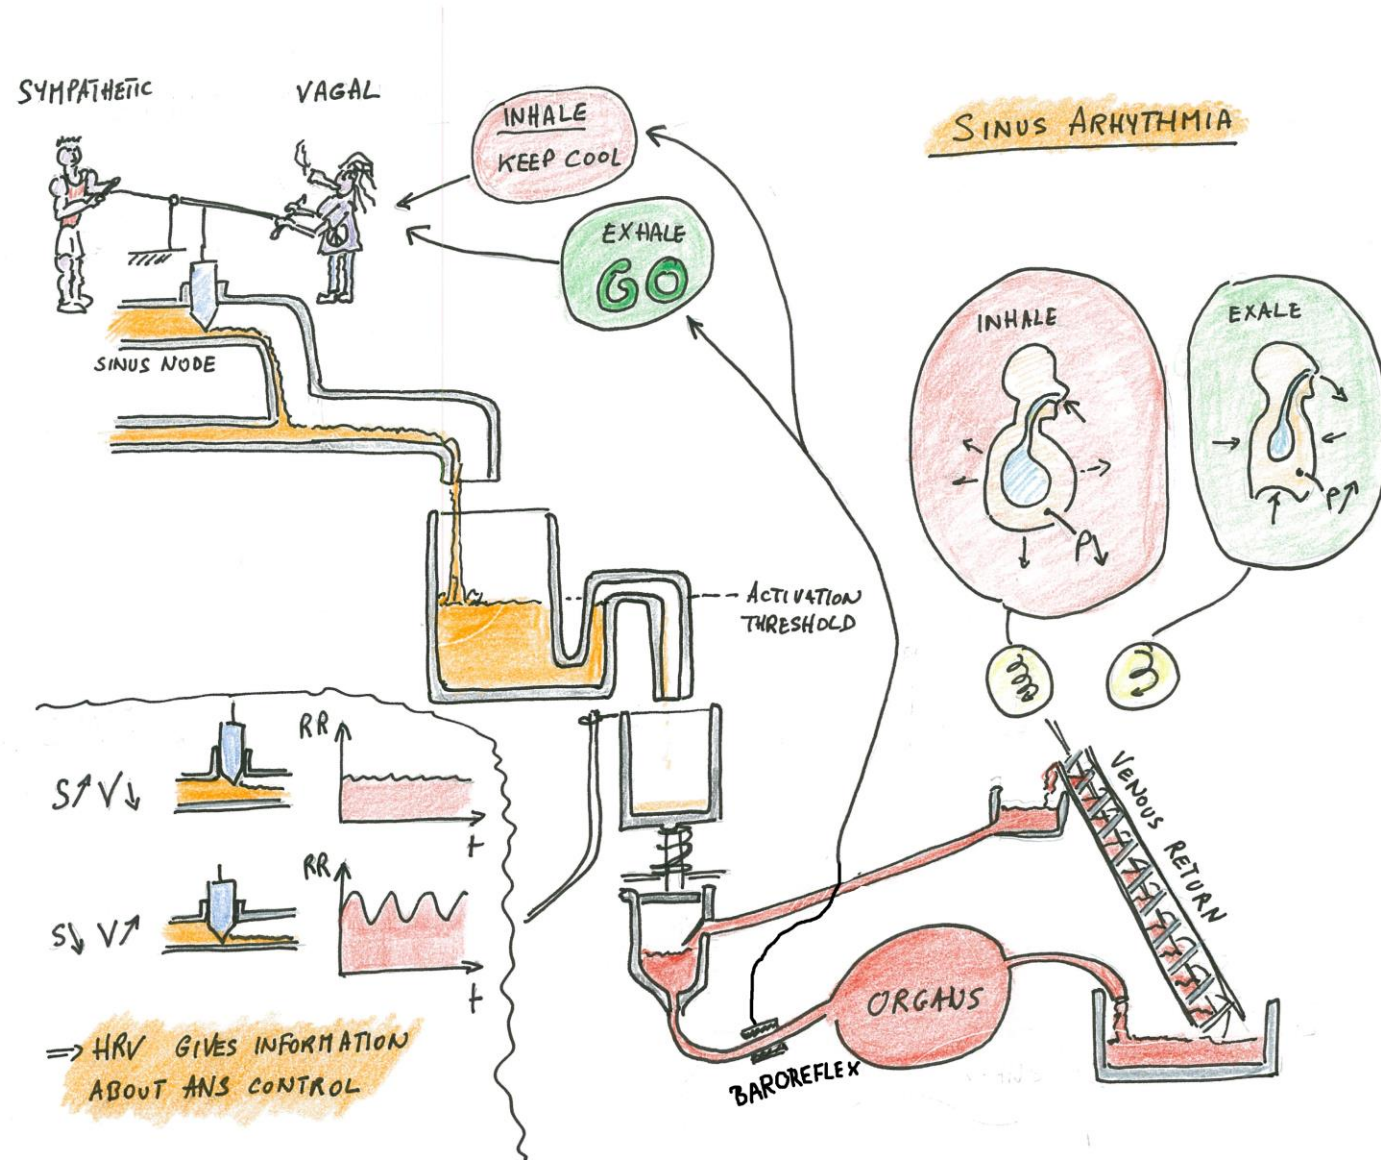 SYMPATHETIC
VAGAL
INHALE
KEEP COOL
EXHALE
GO
SINUS ARHYTHMIA
SINUS NODE
INHALE
P↓
EXALE
P↑
ACTIVATION
THRESHOLD
RR
S↑ V↓
t
RR
S↓ V↑
t
VENOUS RETURN
ORGANS
BAROREFLEX
=> HRV GIVES INFORMATION
ABOUT ANS CONTROL